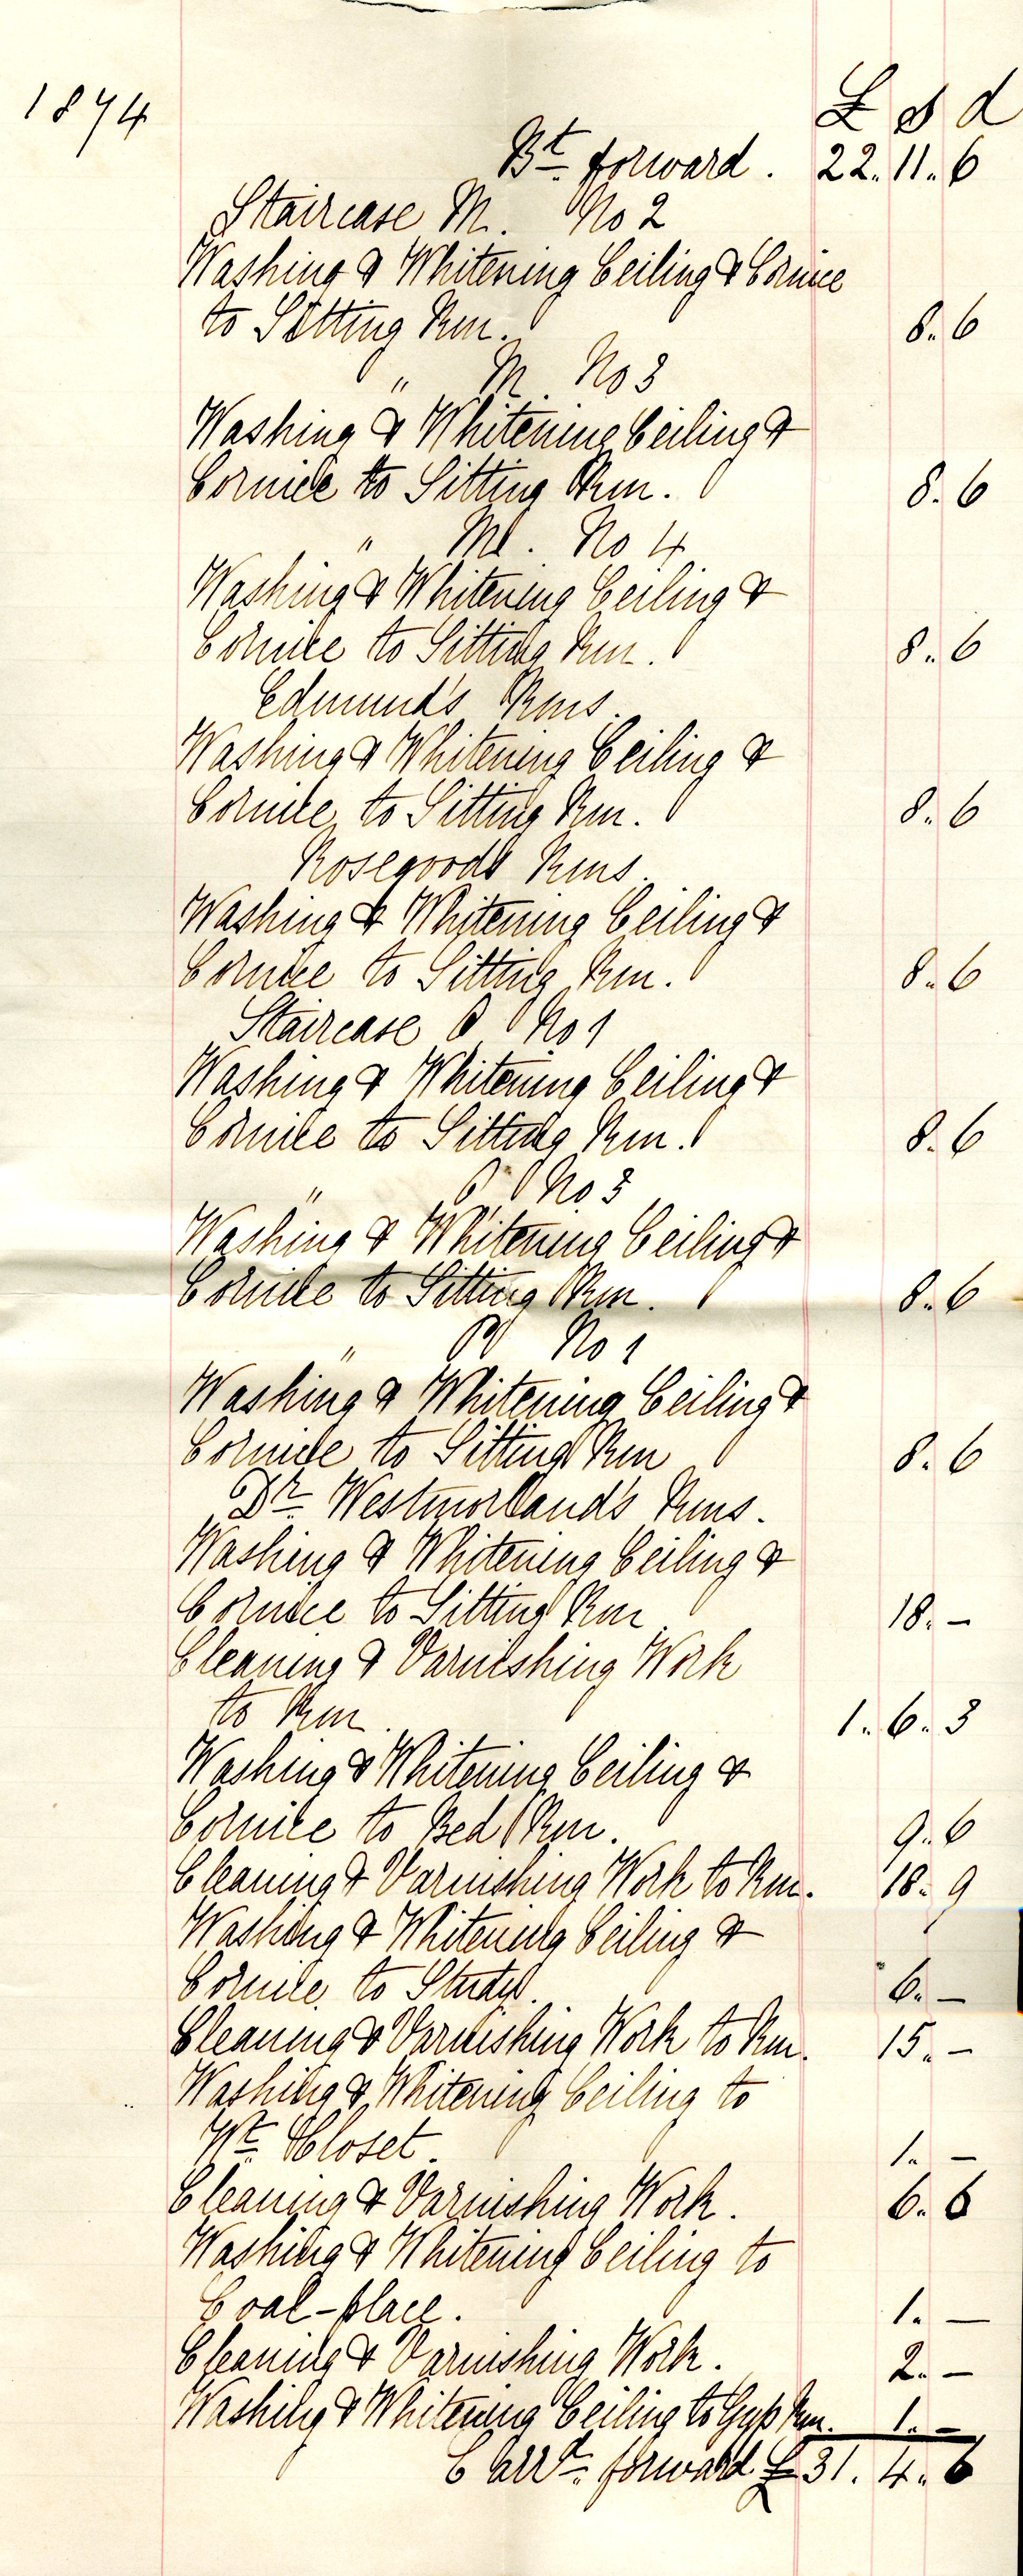 1874
£ s d
Bt. forward. 22. 11. 6
Staircase M. No 2
Washing & Whitening Ceiling & Cornice
to Sitting Rm. 8. 6
" M. No 3
Washing & Whitening Ceiling &
Cornice to Sitting Rm. 8. 6
" M. No 4
Washing & Whitening Ceiling &
Cornice to Sitting Rm. 8. 6
Edmund's Rms.
Washing & Whitening Ceiling &
Cornice to Sitting Rm. 8. 6
Rosegood's Rms.
Washing & Whitening Ceiling &
Cornice to Sitting Rm. 8. 6
Staircase O No 1
Washing & Whitening Ceiling &
Cornice to Sitting Rm. 8. 6
" O No 3
Washing & Whitening Ceiling &
Cornice to Sitting Rm. 8. 6
" No 1
Washing & Whitening Ceiling &
Cornice to Sitting Rm 8. 6
Dr. Westmorland's Rms.
Washing & Whitening Ceiling &
Cornice to Sitting Rm 18. –
Cleaning & Varnishing Work
to Rm. 1. 6. 3
Washing & Whitening Ceiling &
Cornice to Bed Rm. 9. 6
Cleaning & Varnishing Work to Rm. 18. 9
Washing & Whitening Ceiling &
Cornice to Study. 6. –
Cleaning & Varnishing Work to Rm. 15. –
Washing & Whitening Ceiling to
Wt. Closet. 1. –
Cleaning & Varnishing Work. 6. 6
Washing & Whitening Ceiling to
Coal-place. 1. –
Cleaning & Varnishing Work. 2. –
Washing & Whitening Ceiling to Gyp Rm. 1. –
Carrd. forward £ 31. 4. 6